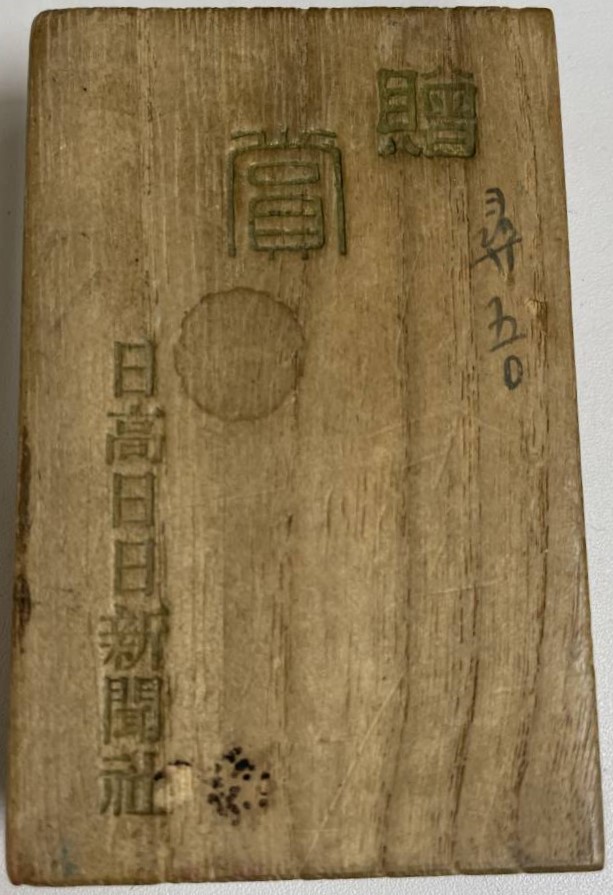 贈
賞
五〇
日高日日新聞社